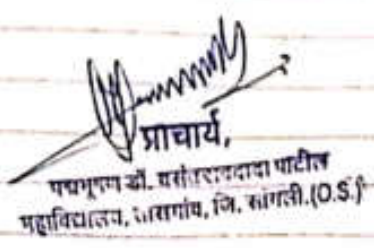 प्राचार्य,
पद्मभूषण डॉ. वसंतरावदादा पाटील
महाविद्यालय, तासगांव, जि. सांगली.(O.S.)